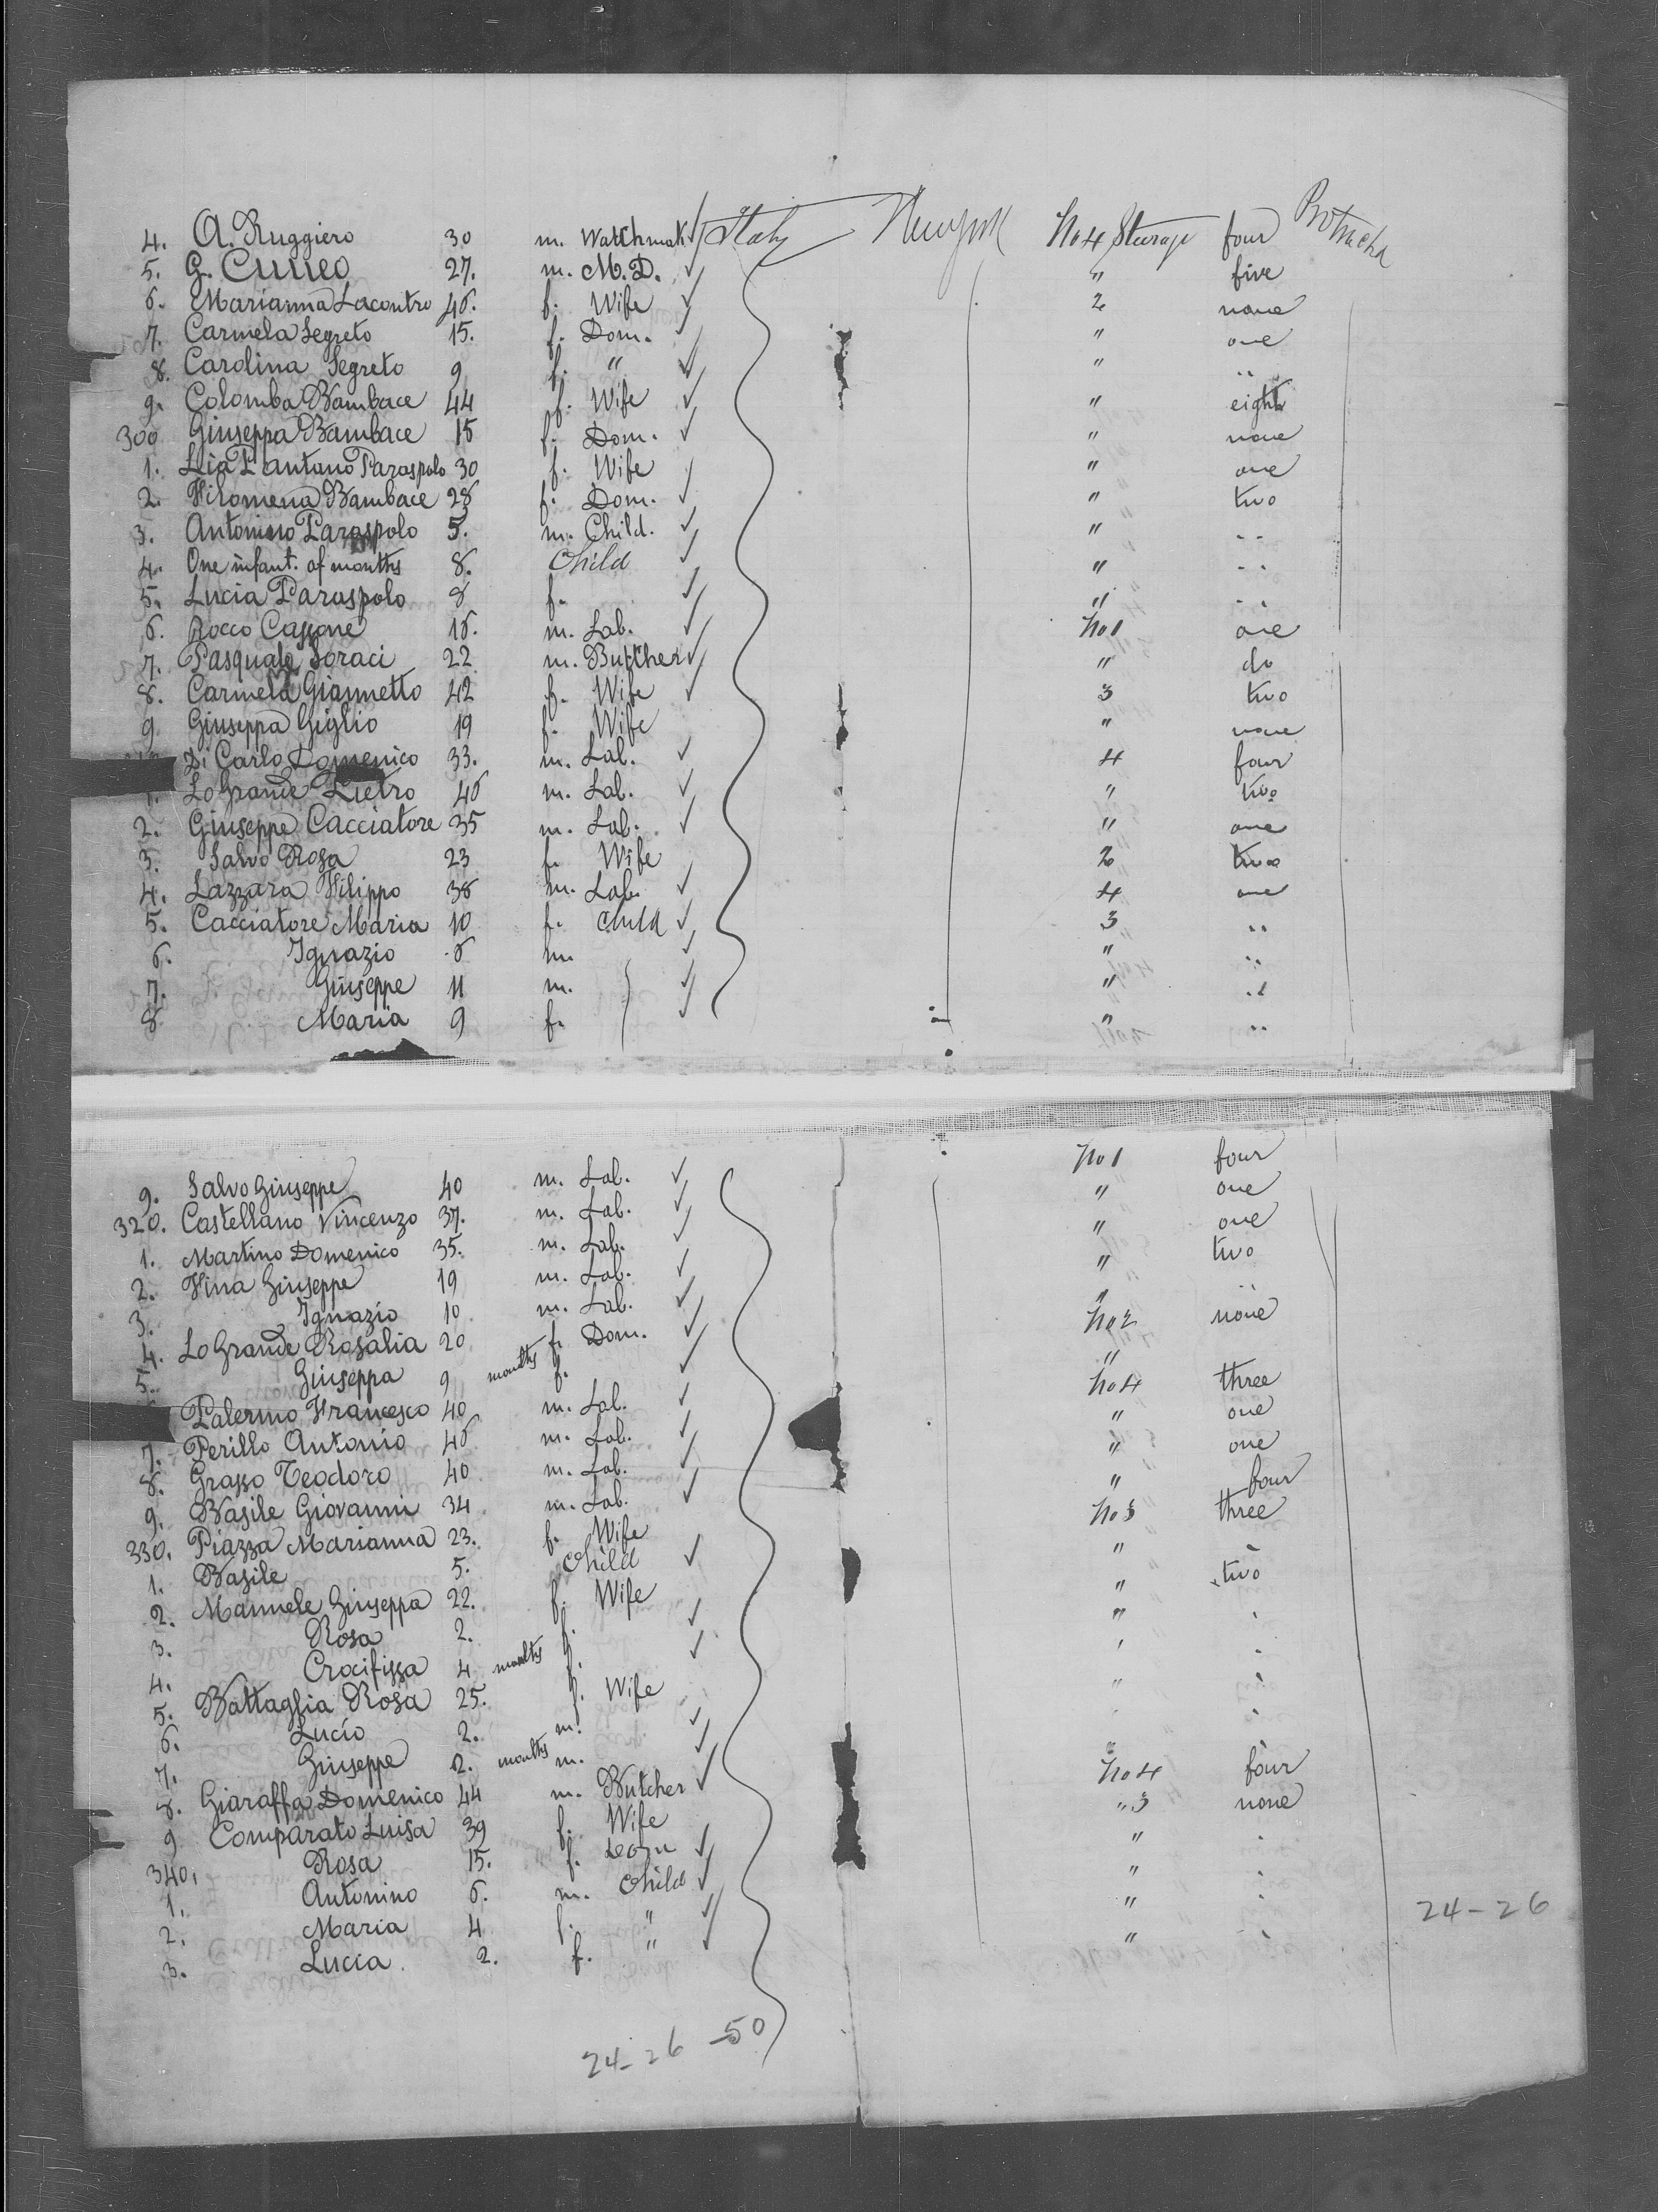 4. A. Ruggiero 30 m. Watchmak. Italy New York No 4 Steerage four
5. G. Cuneo 27. m. M.D. " five
6. Marianna Lacontro 46. f. Wife 2 none
7. Carmela Segreto 15. f. Dom. " one
8. Carolina Segreto 9 f. " " ..
9. Colomba Bambace 44 f. Wife " eight
300 Giuseppa Bambace 15 f. Dom. " none
1. Lia Pantano Paraspolo 30 f. Wife " one
2. Filomena Bambace 28 f. Dom. " two
3. Antonino Paraspolo 5. m. Child. " ..
4. One infant. of months 8. Child " ..
5. Lucia Paraspolo 8 f. " ..
6. Rocco Cassone 16. m. Lab. No 1 one
7. Pasquale Soraci 22 m. Butcher " do
8. Carmela Giannetto 42 f. Wife 3 two
9 Giuseppa Giglio 19 f. Wife " none
Di Carlo Domenico 33. m. Lab. 4 four
1. Lo Grande Pietro 46 m. Lab. " two
2. Giuseppe Cacciatore 35 m. Lab. " one
3. Salvo Rosa 23 f. Wife 2 two
4. Lazzara Filippo 38 m. Lab. 4 one
5. Cacciatore Maria 10 f. Child 3 ..
6. Ignazio 6 m. " ..
7. Giuseppe 11 m. " ..
8 Maria 9 f. " ..
9. Salvo Giuseppe 40 m. Lab. No 1 four
320. Castellano Vincenzo 37. m. Lab. " one
1. Martino Domenico 35. m. Lab. " one
2. Fina Giuseppe 19 m. Lab. " two
3. Ignazio 10 m. Lab. " ..
4. Lo Grande Rosalia 20 f. Dom. No 2 none
5. Giuseppa 9 months f. "
Palermo Francesco 40 m. Lab. No 4 three
7. Perillo Antonio 46 m. Lab. " one
8. Grasso Teodoro 40 m. Lab. " one
9. Basile Giovanni 34 m. Lab. " four
330. Piazza Marianna 23. f. Wife No 3 three
1. Basile 5. Child "
2. Mannele Giuseppa 22. f. Wife " two
3. Rosa 2. f. "
4. Crocifissa 4 months f.
5. Battaglia Rosa 25. f. Wife "
6. Lucio 2. m.
7. Giuseppe 2. months m. "
8. Giaraffa Domenico 44 m. Butcher No 4 four
9 Comparato Luisa 39 f. Wife " 3 none
340. Rosa 15. f. Dom "
1. Antonino 6. m. Child "
2. Maria 4 f. " "
3. Lucia 2. f. " "
24-26
24-26-50